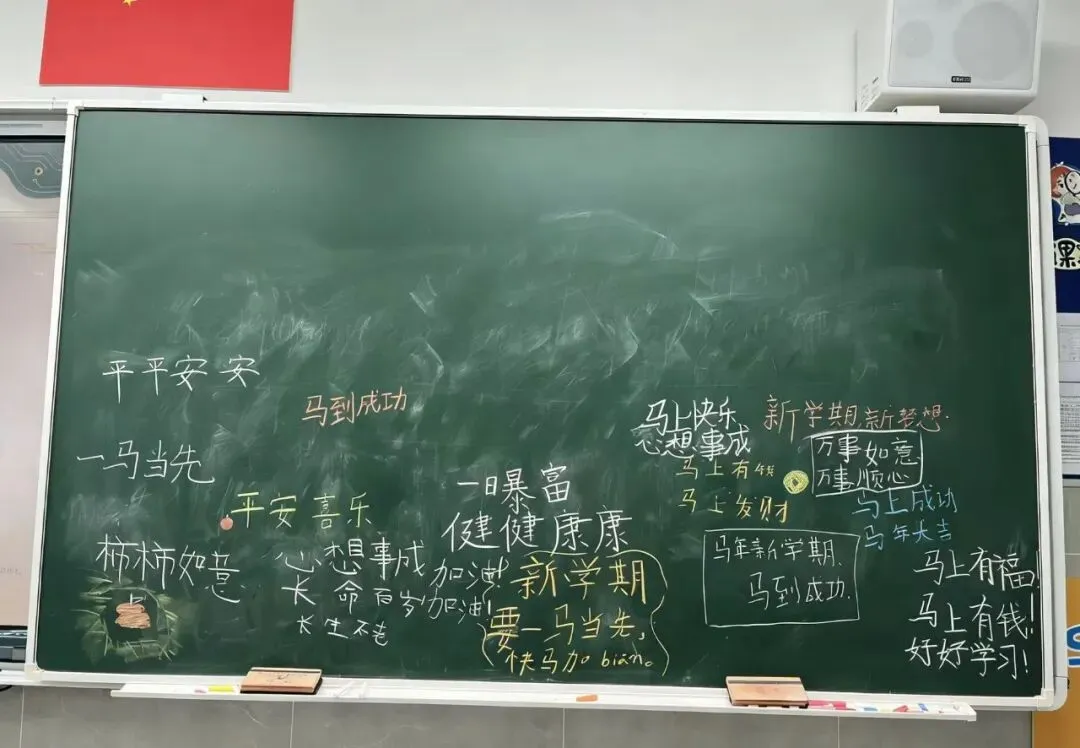 平平安安
马到成功
一马当先
平安喜乐
柿柿如意
心想事成
长命百岁
长生不老
加油!
加油!
一日暴富
健健康康
新学期
要一马当先,
快马加biān。
马上快乐
心想事成
马上有钱
马上发财
新学期新梦想.
万事如意
万事顺心
马上成功
马年大吉
马年新学期.
马到成功.
马上有福!
马上有钱!
好好学习!
课